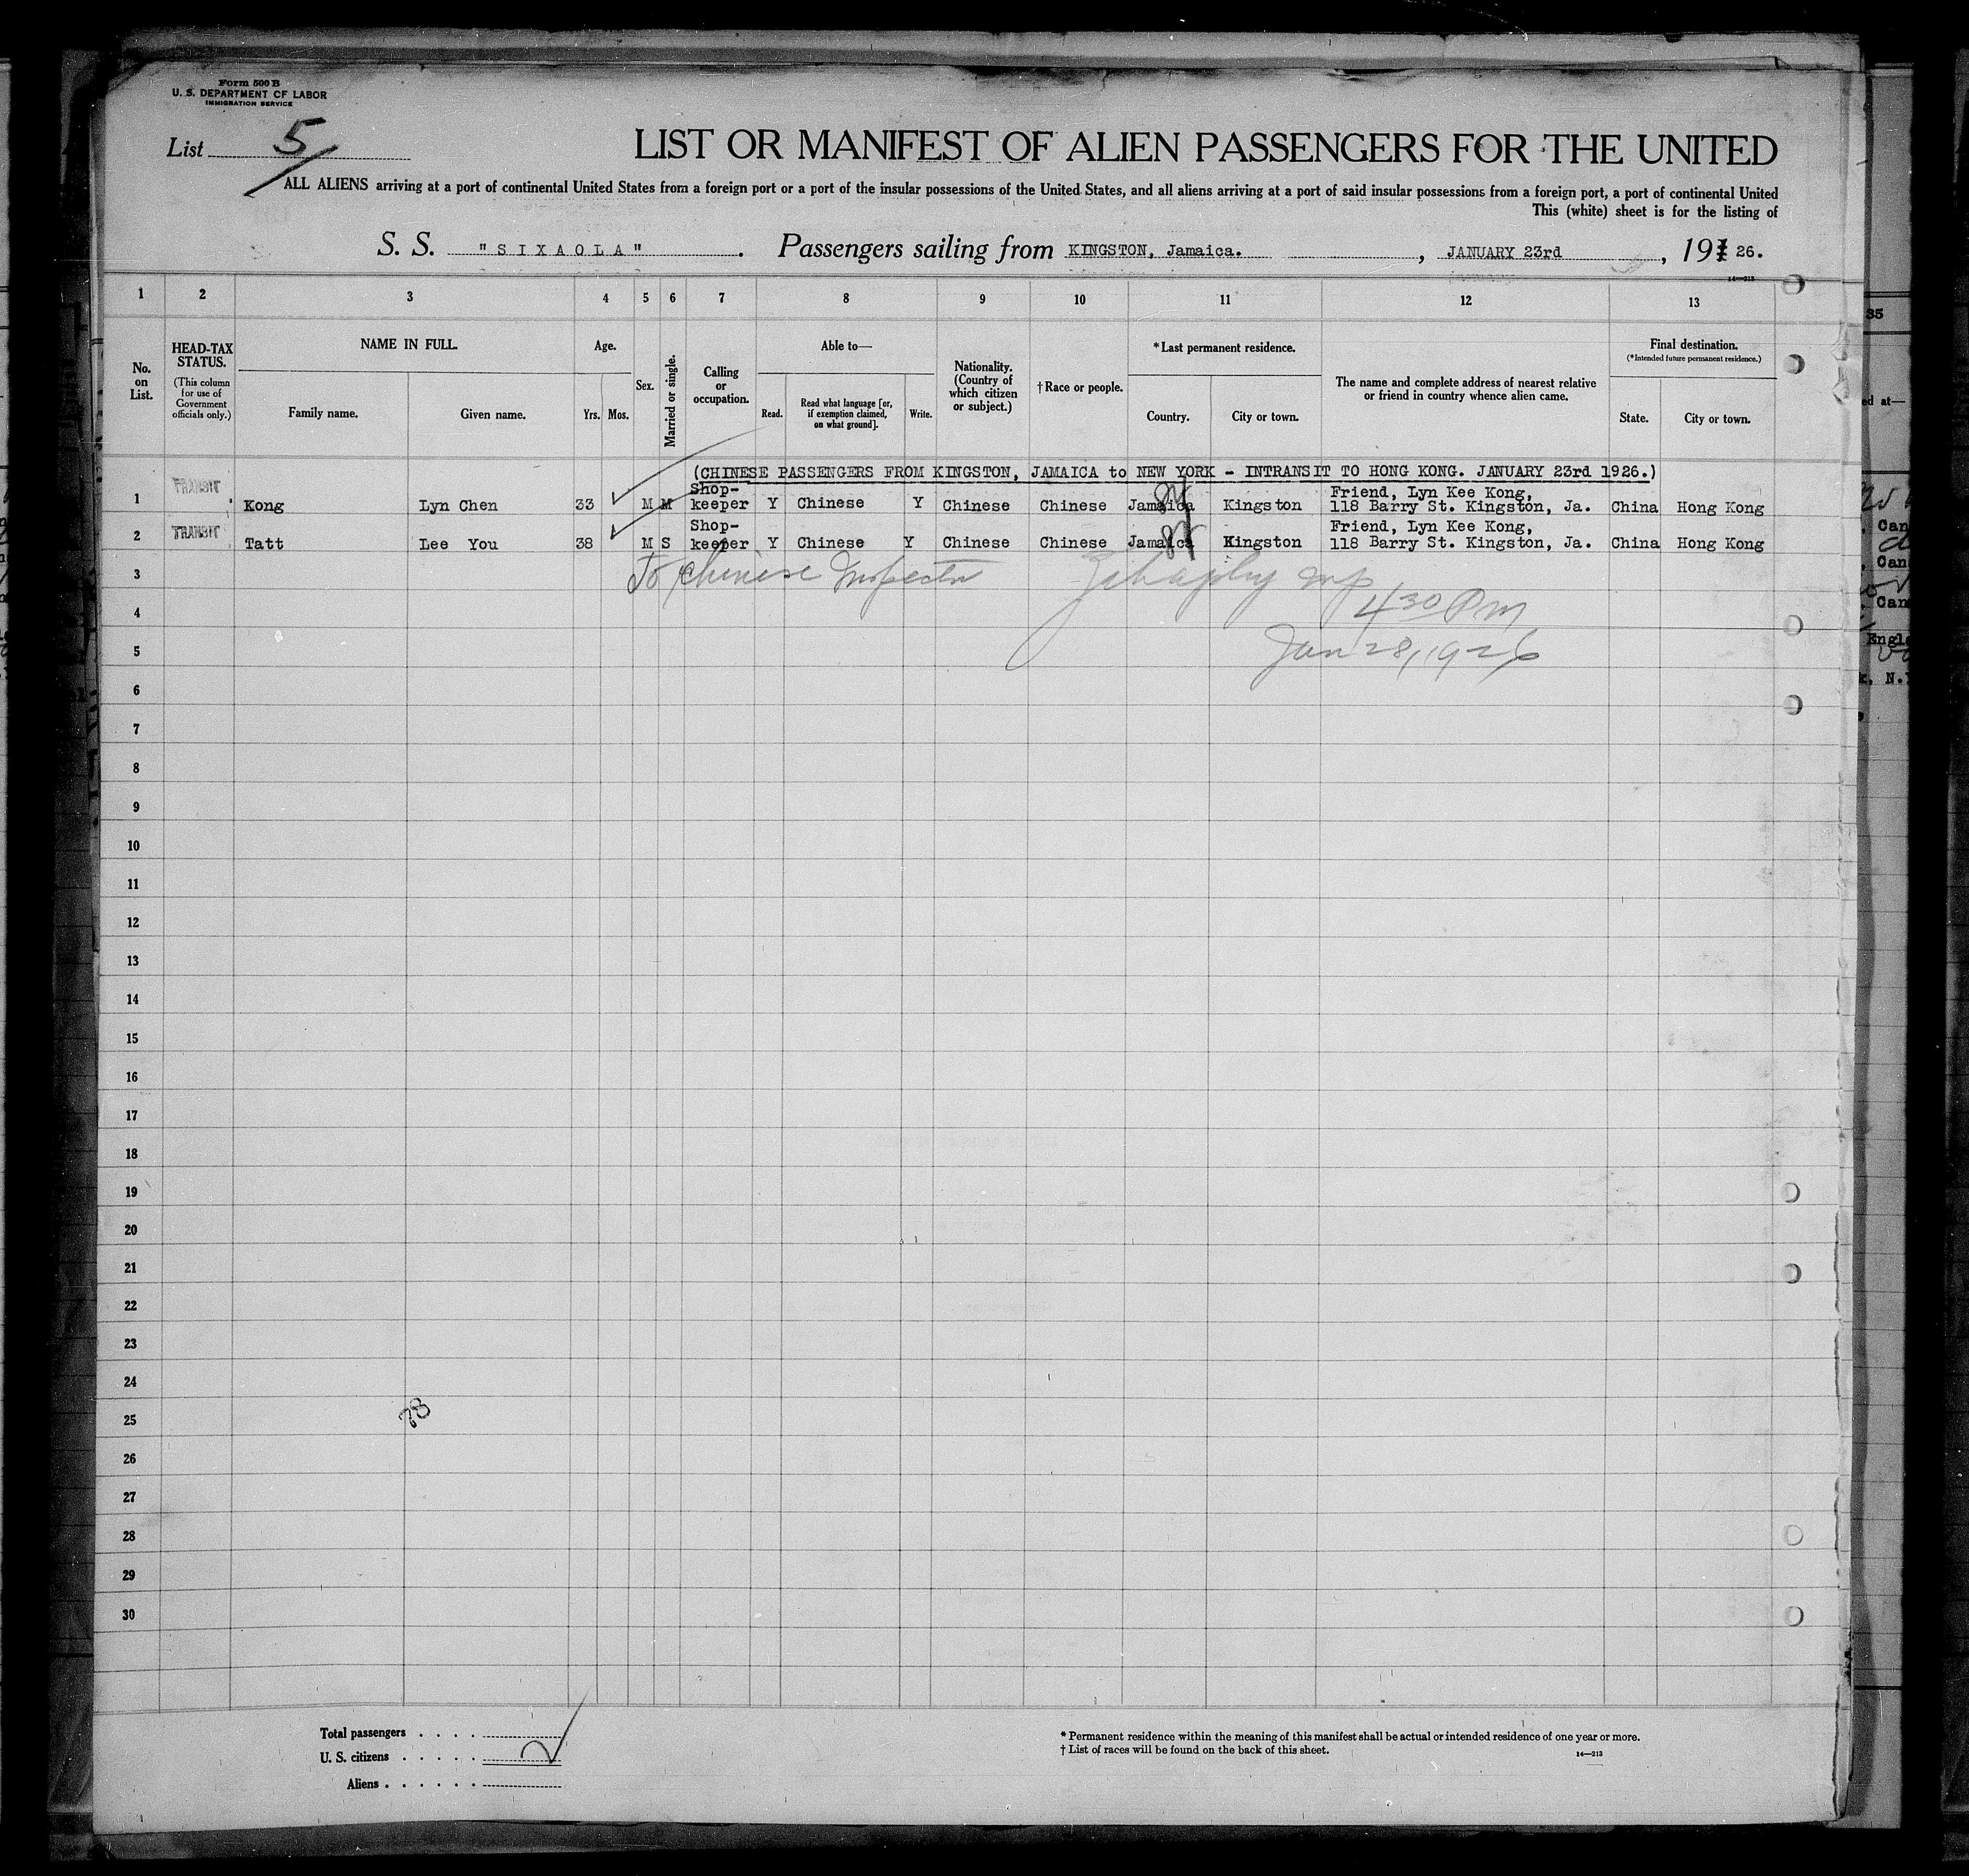 Form 500 B
U. S. DEPARTMENT OF LABOR
IMMIGRATION SERVICE
List 5
LIST OR MANIFEST OF ALIEN PASSENGERS FOR THE UNITED
ALL ALIENS arriving at a port of continental United States from a foreign port or a port of the insular possessions of the United States, and all aliens arriving at a port of said insular possessions from a foreign port, a port of continental United
This (white) sheet is for the listing of
S. S. "SIXAOLA". Passengers sailing from KINGSTON, Jamaica. , JANUARY 23rd , 19 26.
14—213
1 2 3 4 5 6 7 8 9 10 11 12 13
No. on List.
HEAD-TAX STATUS.
(This column for use of Government officials only.)
NAME IN FULL.
Family name. Given name.
Age.
Yrs. Mos.
Sex.
Married or single.
Calling or occupation.
Able to—
Read. Read what language [or, if exemption claimed, on what ground]. Write.
Nationality. (Country of which citizen or subject.)
†Race or people.
*Last permanent residence.
Country. City or town.
The name and complete address of nearest relative or friend in country whence alien came.
Final destination.
(*Intended future permanent residence.)
State. City or town.
(CHINESE PASSENGERS FROM KINGSTON, JAMAICA to NEW YORK - INTRANSIT TO HONG KONG. JANUARY 23rd 1926.)
1 TRANSIT Kong Lyn Chen 33 M M Shop-keeper Y Chinese Y Chinese Chinese Jamaica Kingston Friend, Lyn Kee Kong, 118 Barry St. Kingston, Ja. China Hong Kong
2 TRANSIT Tatt Lee You 38 M S Shop-keeper Y Chinese Y Chinese Chinese Jamaica Kingston Friend, Lyn Kee Kong, 118 Barry St. Kingston, Ja. China Hong Kong
3 To Chinese Inspector
4 4 30 PM
5 Jan 28, 1926
6
7
8
9
10
11
12
13
14
15
16
17
18
19
20
21
22
23
24
25
26
27
28
29
30
Total passengers
U. S. citizens 2
Aliens
* Permanent residence within the meaning of this manifest shall be actual or intended residence of one year or more.
† List of races will be found on the back of this sheet.
14—213